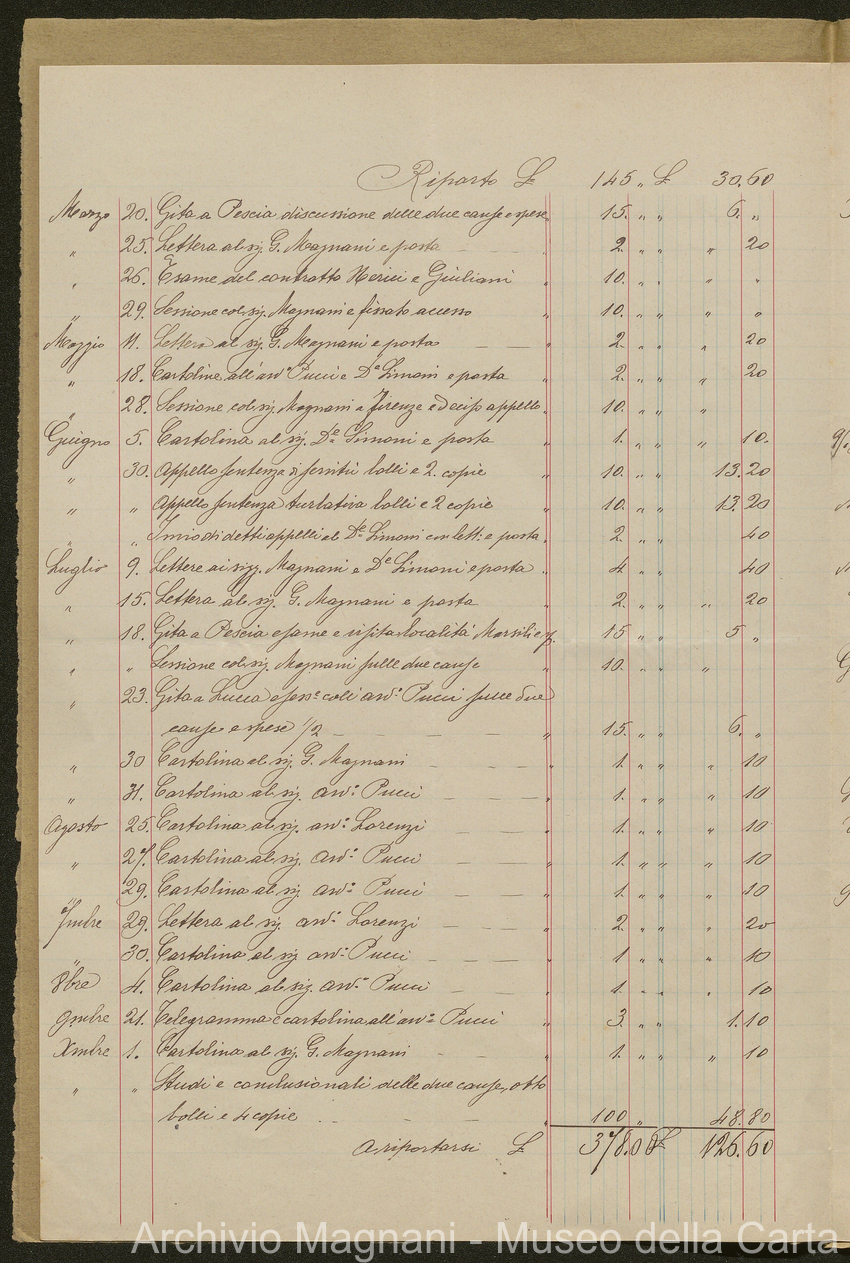 Riporto £ 145 „ £ 30.60
Marzo 20. Gita a Pescia discussione delle due cause e spese 15. „ „ 6. „
„ 25. Lettera al sig. G. Magnani e posta „ 2. „ „ „ 20
„ 26. Esame del contratto Nerici e Giuliani „ 10. „ „ „ „
„ 29. Sessione col sig. Magnani e fissato accesso „ 10. „ „ „ „
Maggio 11. Lettera al sig. G. Magnani e posta „ 2. „ „ „ 20
„ 18. Cartoline all'avv.º Pucci e De Simoni e posta „ 2. „ „ „ 20
„ 28. Sessione col sig. Magnani a Firenze e deciso appello „ 10. „ „ „
Giugno 5. Cartolina al sig. De Simoni e posta „ 1. „ „ „ 10.
„ 30. Appello sentenza di servitù bolli e 2. copie „ 10. „ „ 13.20
„ „ Appello sentenza turbativa bolli e 2 copie „ 10. „ „ 13.20
„ „ Invio di detti appelli al De Simoni con lett: e posta „ 2. „ „ 40
Luglio 9. Lettere ai sigg. Magnani e De Simoni e posta „ 4. „ „ 40
„ 15. Lettera al sig. G. Magnani e posta „ 2. „ „ „ 20
„ 18. Gita a Pescia esame e visita località Marsili e sp. 15 „ „ 5 „
„ „ Sessione col sig. Magnani sulle due cause „ 10. „ „ „
„ 23. Gita a Lucca e sess.e coll'avv.º Pucci sulle due
cause e spese 1/2 „ 15. „ „ 6. „
„ 30 Cartolina al sig. G. Magnani „ 1. „ „ „ 10
„ 31. Cartolina al sig. avv.º Pucci „ 1. „ „ „ 10
Agosto 25. Cartolina al sig. avv.º Lorenzi „ 1. „ „ „ 10
„ 27. Cartolina al sig. avv.º Pucci „ 1. „ „ „ 10
„ 29. Cartolina al sig. avv.º Pucci „ 1. „ „ „ 10
7mbre 29. Lettera al sig. avv.º Lorenzi „ 2. „ „ „ 20
„ 30. Cartolina al sig. avv.º Pucci „ 1 „ „ „ 10
8bre 4. Cartolina al sig. avv.º Pucci „ 1. „ „ „ 10
9mbre 21. Telegramma e cartolina all'avv.º Pucci „ 3. „ „ 1.10
Xmbre 1. Cartolina al sig. G. Magnani „ 1. „ „ „ 10
„ „ Studi e conclusionali delle due cause, otto
bolli e 4 copie „ 100 „ 48.80
A riportarsi £ 378.00 £ 126.60
Archivio Magnani - Museo della Carta